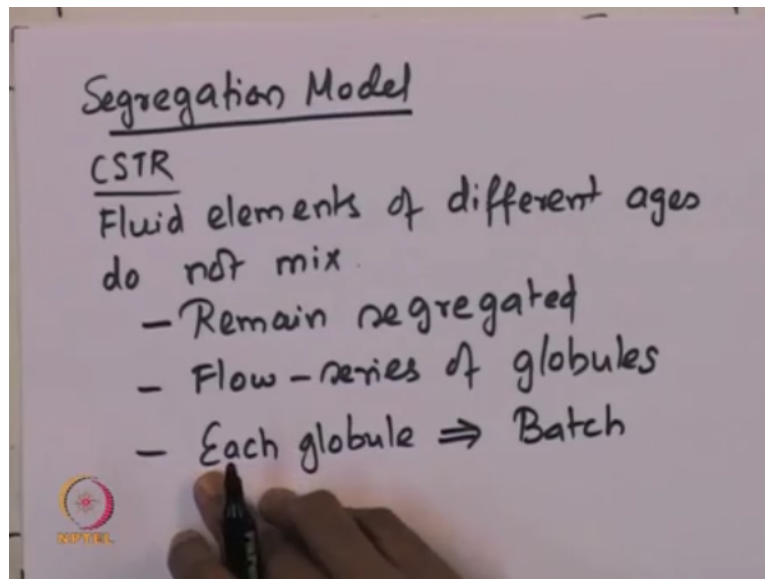 Segregation Model
CSTR
Fluid elements of different ages
do not mix.
- Remain segregated
- Flow - series of globules
- Each globule ⇒ Batch
NPTEL